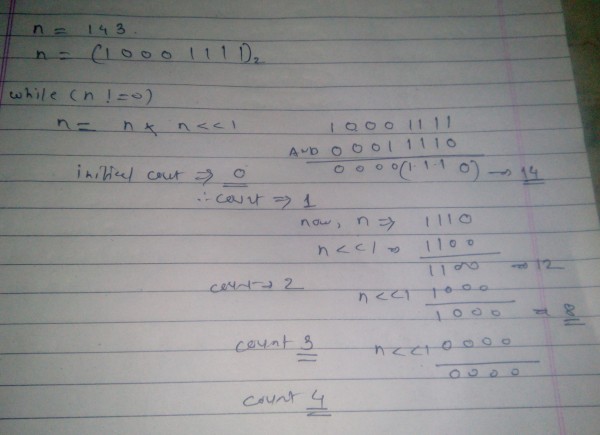 n = 143.
n = (1 0 0 0 1 1 1 1)2
while (n != 0)
n = n & n<<1
1 0 0 0 1 1 1 1
AND 0 0 0 1 1 1 1 0
0 0 0 0 (1 1 1 0) → 14
initial cout ⇒ 0
∴ count ⇒ 1
now, n ⇒ 1110
n<<1 ⇒ 1100
1100 ⇒ 12
count → 2
n<<1 1000
1000 ⇒ 8
count 3
n<<1 0000
0000
count 4